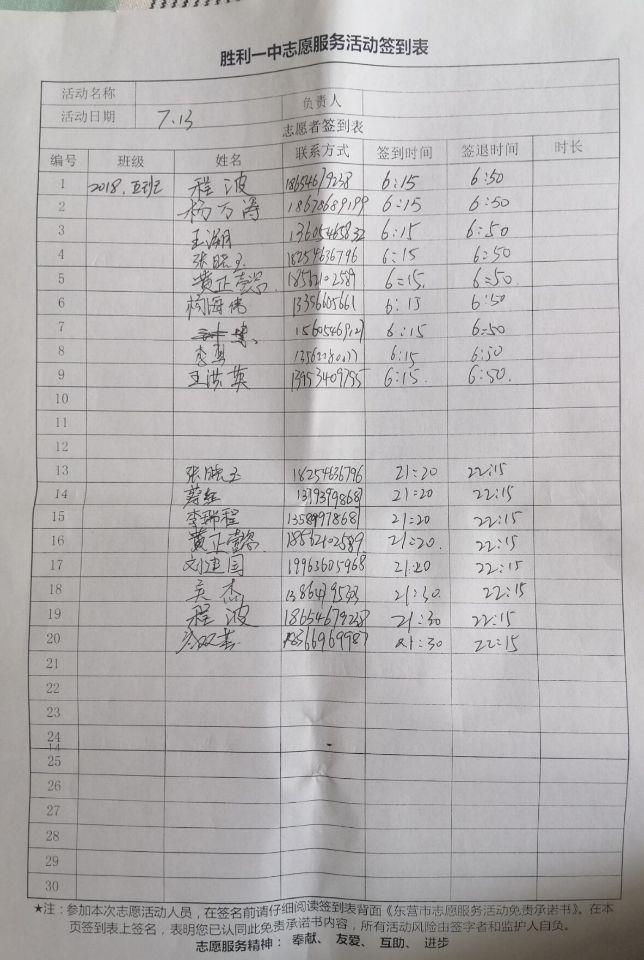 胜利一中志愿服务活动签到表
活动名称 负责人
活动日期 7.13
志愿者签到表
编号 班级 姓名 联系方式 签到时间 签退时间 时长
1 2018.五班 程波 18654679238 6:15 6:50
2 杨万涛 18678689199 6:15 6:50
3 王湖 13605465832 6:15 6:50
4 张胜玉 18254636796 6:15 6:50
5 黄正壹 18562102589 6:15. 6:50.
6 杨海伟 13356605661 6:15 6:50
7 6:15 6:50
8 李 6:15 6:50
9 王洪英 13953409795 6:15. 6:50.
10
11
12
13 张胜玉 18254636796 21:20 22:15
14 21:20 22:15
15 李瑞程 21:20 22:15
16 黄正壹 18562102589 21:20. 22:15
17 刘建国 19963605968 21:20 22:15
18 吴杰 21:30 22:15
19 程波 18654679238 21:30 22:15
20 21:30 22:15
21
22
23
24
14
25
26
27
28
29
30
★注：参加本次志愿活动人员，在签名前请仔细阅读签到表背面《东营市志愿服务活动免责承诺书》。在本
页签到表上签名，表明您已认同此免责承诺书内容，所有活动风险由签字者和监护人自负。
志愿服务精神： 奉献、 友爱、 互助、 进步